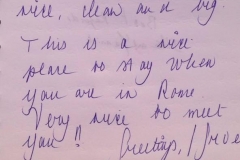 nice, clean and big.
This is a nice
place to stay when
you are in Rome.
Very nice to meet
you!! Greetings,